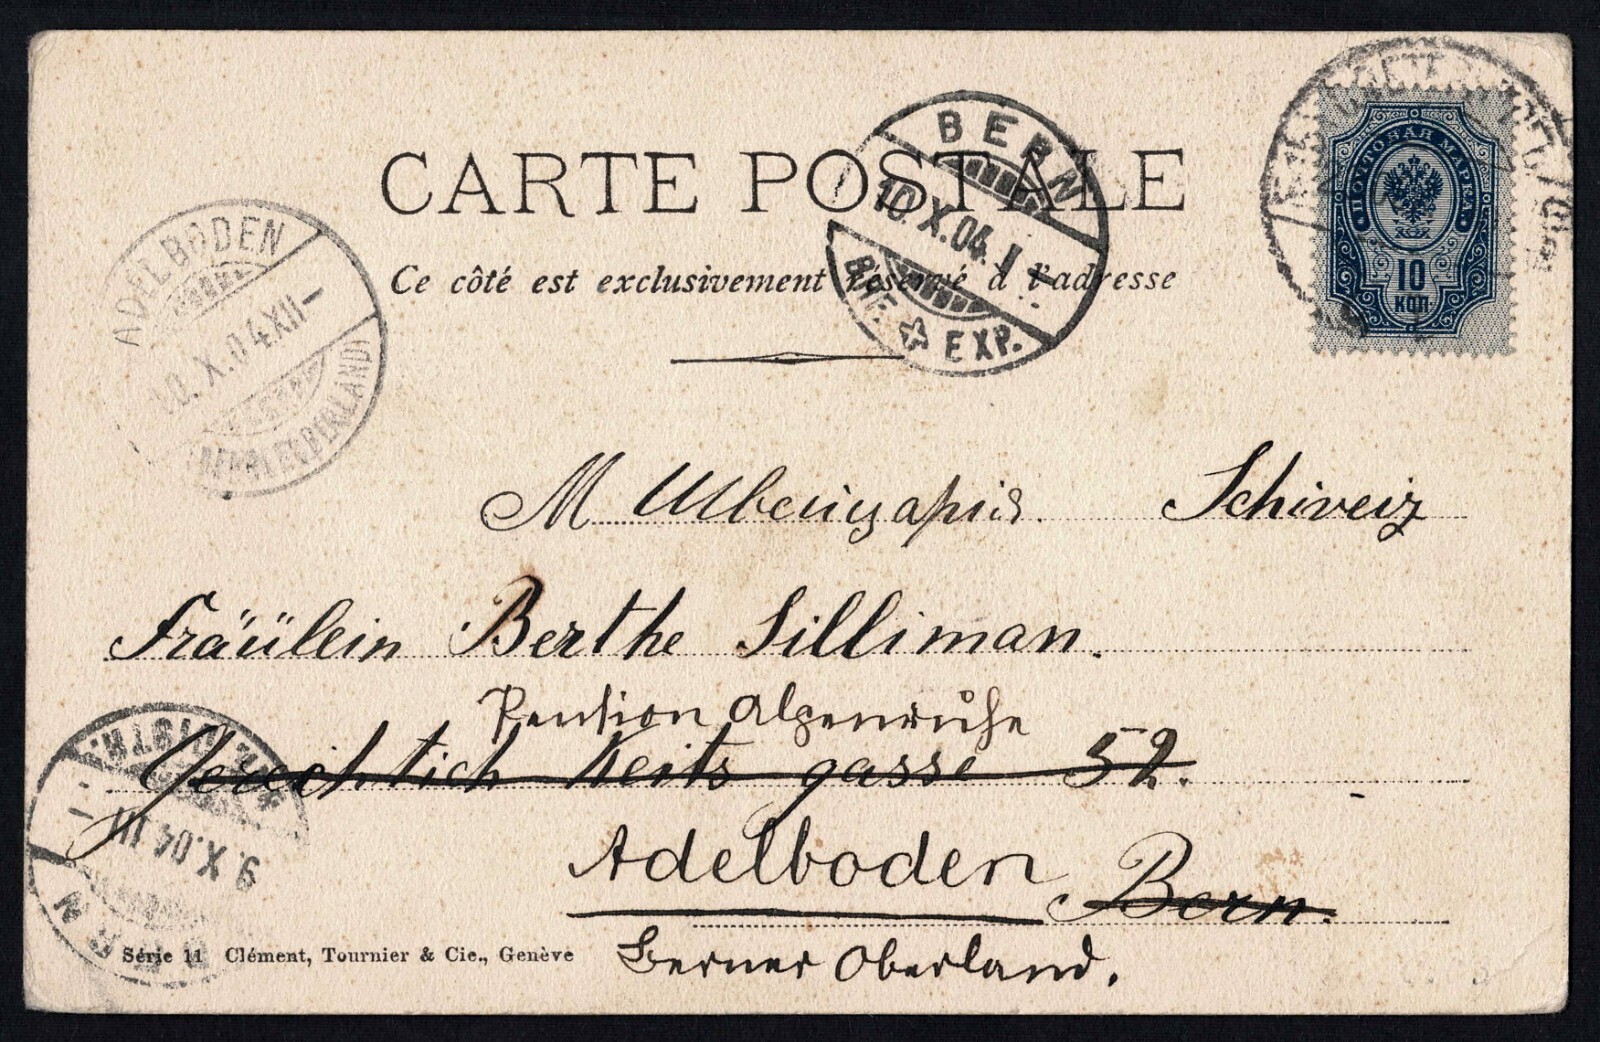 CARTE POSTALE
Ce côté est exclusivement réservé à l'adresse
BERN
10.X.04.
BRF. EXP.
ПОЧТОВАЯ МАРКА
10
КОП.
ADELBODEN
10.X.04.XII–
(BERNER OBERLAND)
М Швейцарія. Schiveiz
Fräülein Berthe Silliman.
Pension Alpenruhe
Gerechtich Keits gasse 52.
Adelboden Bern.
Berner Oberland.
BERN
9.X.04 III–
Série 11 Clément, Tournier & Cie., Genève